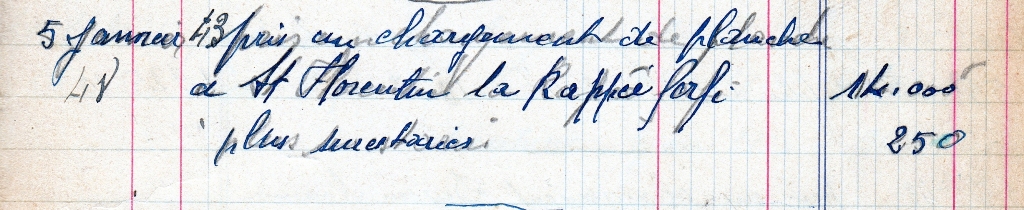 5 Janvier 43 pris un chargement de planche
48 a St Florentin la Rappée forfi 14.000
plus 250